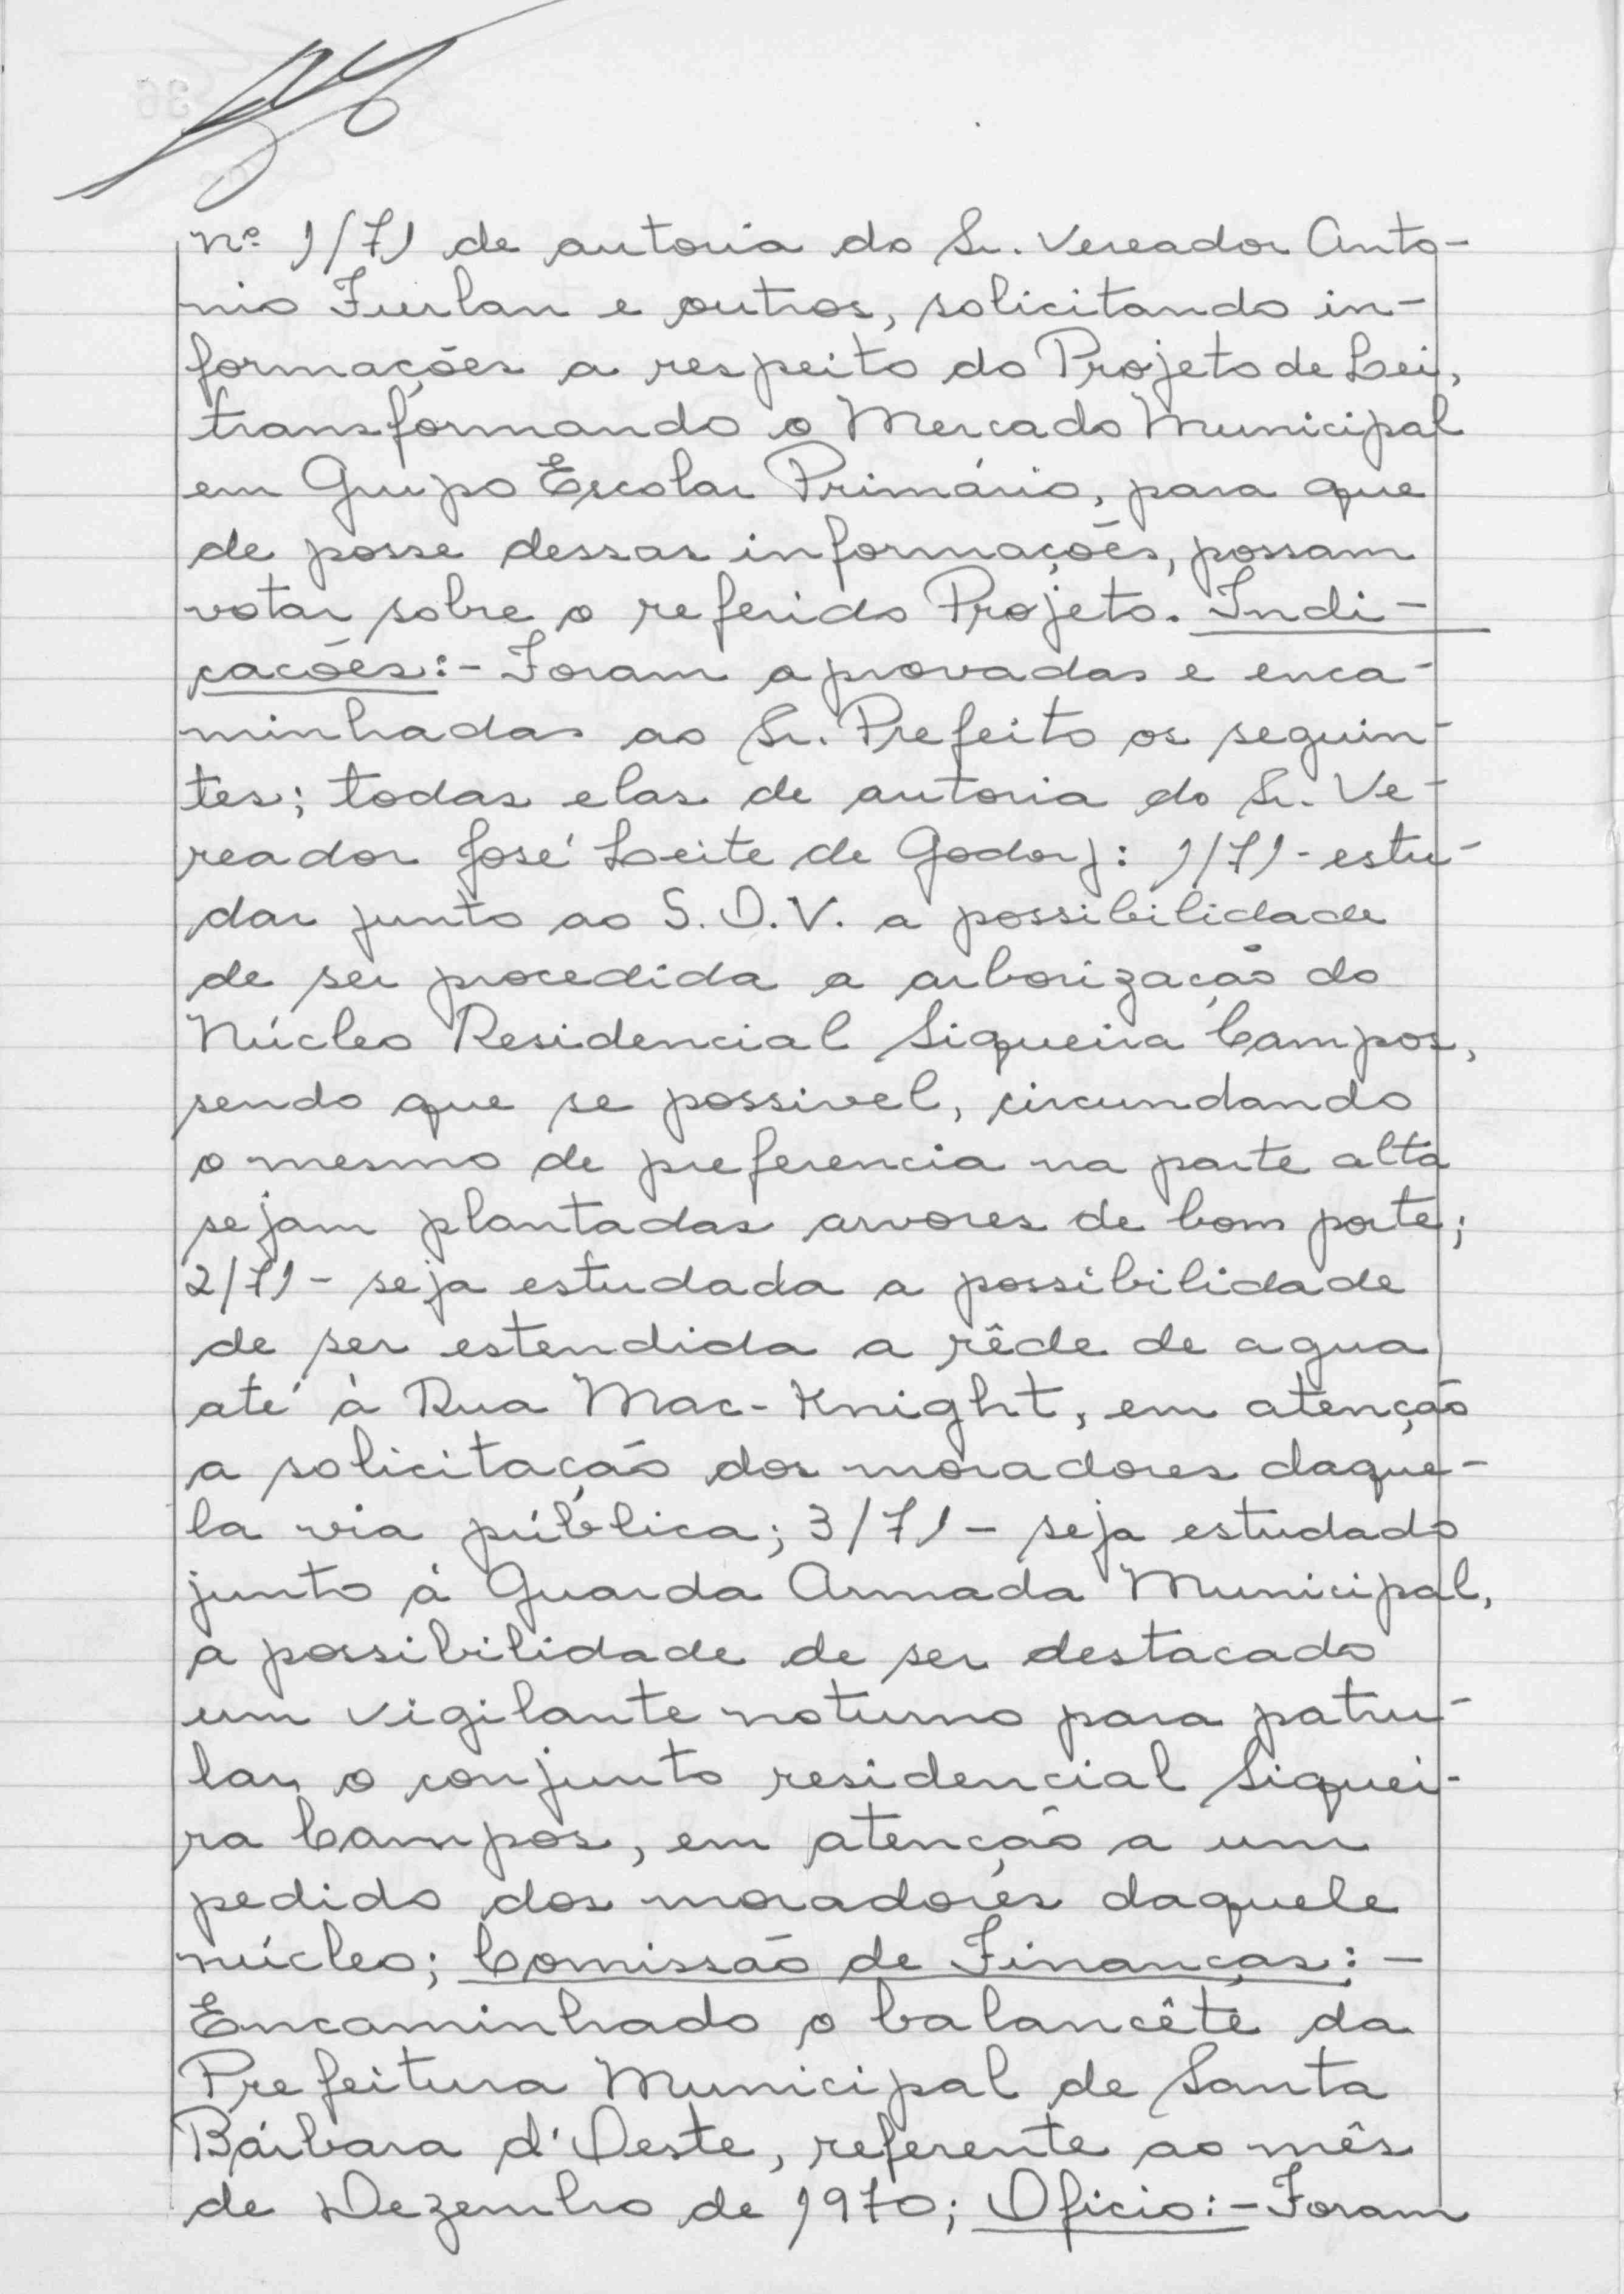 nº 1/71 de autoria do Sr. Vereador Anto-
nio Furlan e outros, solicitando in-
formações a respeito do Projeto de Lei,
transformando o Mercado Municipal
em Grupo Escolar Primário, para que
de posse dessas informações, possam
votar sobre o referido Projeto. Indi-
cacões:- Foram aprovadas e enca-
minhadas ao Sr. Prefeito os seguin-
tes; todas elas de autoria do Sr. Ve-
reador José Leite de Godoy: 1/71 - estu-
dar junto ao S.O.V. a possibilidade
de ser procedida a arborização do
Núcleo Residencial Siqueira Campos,
sendo que se possivel, circundando
o mesmo de preferencia na parte alta
sejam plantadas arvores de bom porte;
2/71 - seja estudada a possibilidade
de ser estendida a rêde de agua
até à Rua Mac-Knight, em atenção
a solicitação dos moradores daque-
la via pública; 3/71 - seja estudado
junto à Guarda Armada Municipal,
a possibilidade de ser destacado
um vigilante noturno para patru-
lar o conjunto residencial Siquei-
ra Campos, em atenção a um
pedido dos moradores daquele
núcleo; Comissão de Finanças:-
Encaminhado o balancête da
Prefeitura Municipal de Santa
Bárbara d'Oeste, referente ao mês
de Dezembro de 1970; Oficio:- Foram